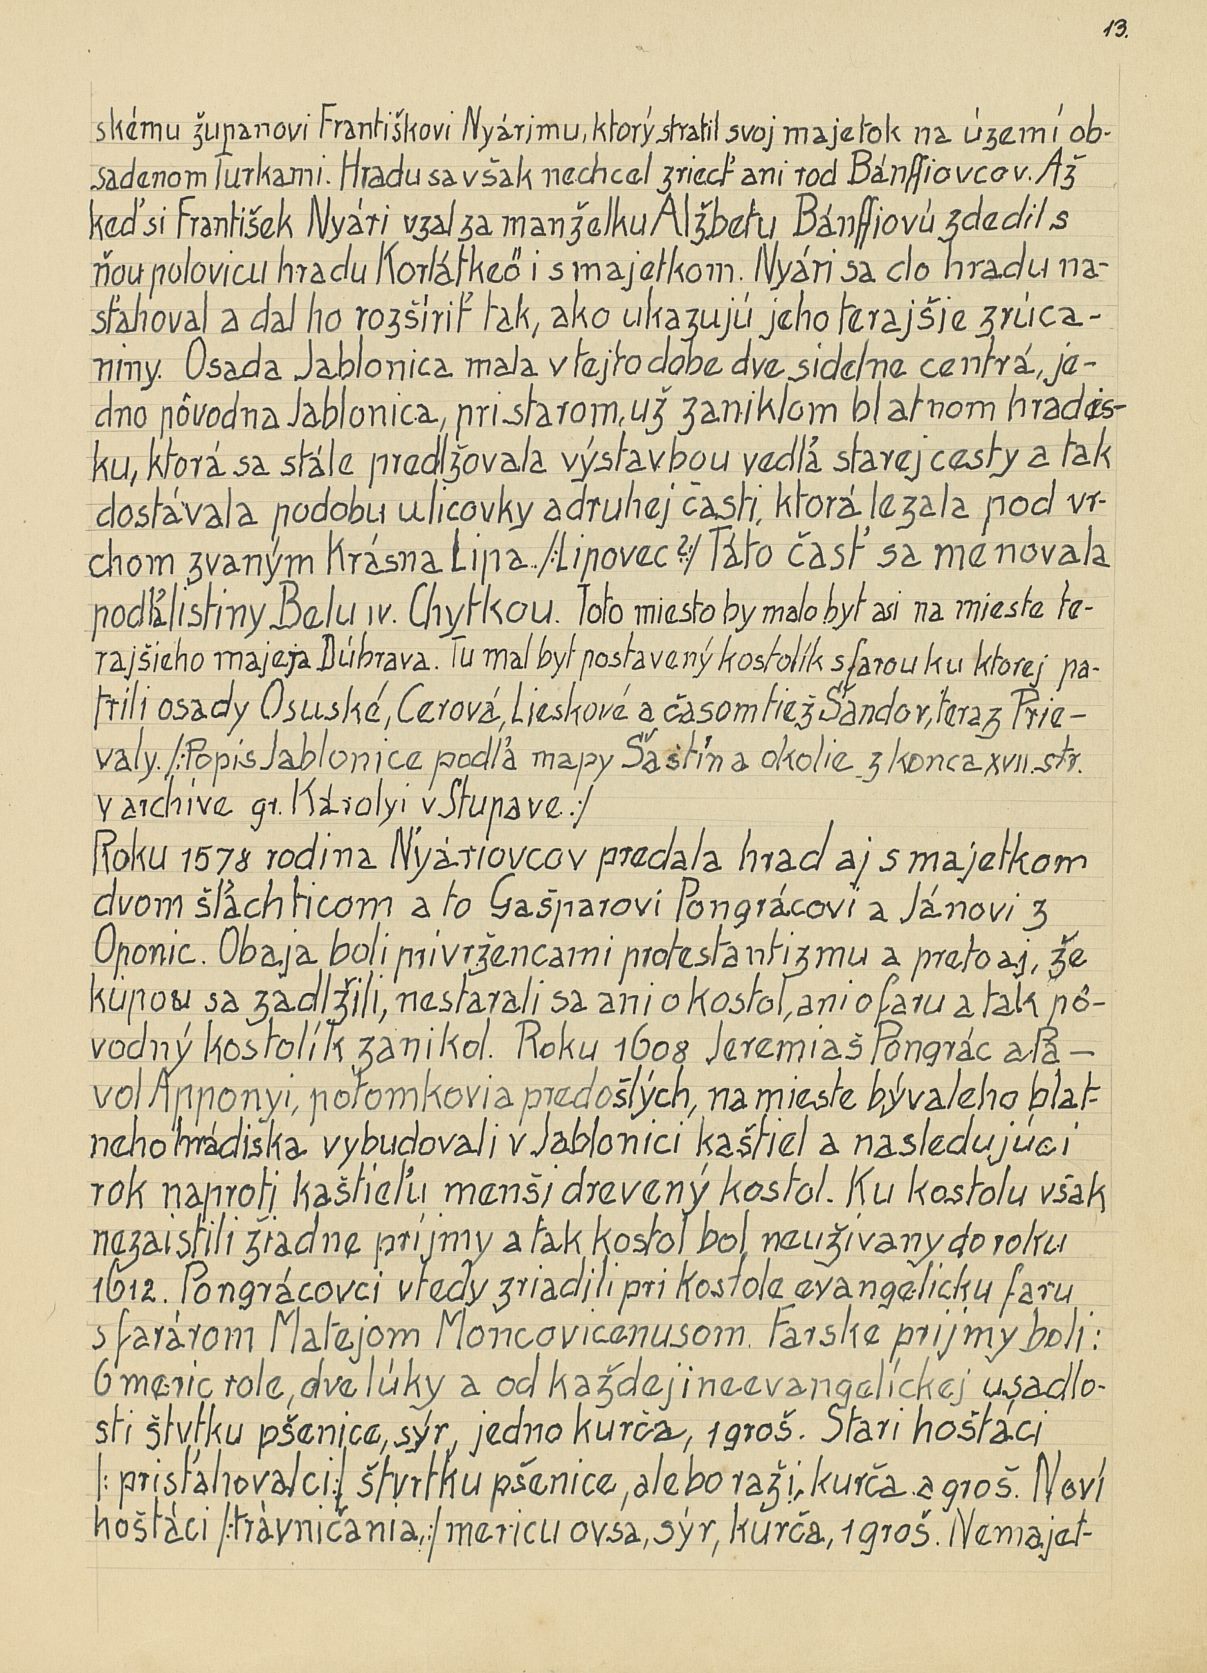 13.
skému županovi Františkovi Nyárimu, ktorý stratil svoj majetok na území ob-
sadenom Turkami. Hradu sa však nechcel zriecť ani rod Bánffiovcov. Až
keď si František Nyári vzal za manželku Alžbetu Bánffiovú zdedil s
ňou polovicu hradu Korlátkeö i s majetkom. Nyári sa do hradu na-
sťahoval a dal ho rozšíriť tak, ako ukazujú jeho terajšie zrúca-
niny. Osada Jablonica mala v tejto dobe dve sidelne centrá, je-
dno pôvodna Jablonica, pri starom, už zaniklom blatnom hradis-
ku, ktorá sa stále predlžovala výstavbou vedľa starej cesty a tak
dostávala podobu ulicovky a druhej časti, ktorá lezala pod vr-
chom zvaným Krásna Lipa. /:Lipovec?:/ Táto časť sa menovala
podľa listiny Belu IV. Chytkou. Toto miesto by malo byt asi na mieste te-
rajšieho majera Dúbrava. Tu mal byt postavený kostolík s farou ku ktorej pa-
trili osady Osuské, Cerová, Lieskové a časom tiež Šándor, teraz Prie-
valy. /:Popis Jablonice podľa mapy Šaštín a okolie z konca XVII. str.
v archíve gr. Károlyi v Stupave:/
Roku 1578 rodina Nyáriovcov predala hrad aj s majetkom
dvom šľachticom a to Gašparovi Pongrácovi a Jánovi z
Oponic. Obaja boli prívržencami protestantizmu a preto aj, že
kúpou sa zadlžili, nestarali sa ani o kostol, ani o faru a tak pô-
vodný kostolík zanikol. Roku 1608 Jeremiaš Pongrác a Pa-
vol Apponyi, potomkovia predošlých, na mieste bývaleho blat-
neho hrádiska vybudovali v Jablonici kaštiel a nasledujúci
rok naproti kaštieľu menši drevený kostol. Ku kostolu však
nezaistili žiadne príjmy a tak kostol bol neužívany do roku
1612. Pongrácovci vtedy zriadili pri kostole evangelicku faru
s farárom Matejom Moncovicenusom. Farske prijmy boli:
6 meric role, dve lúky a od každej ineevangelíckej usadlo-
sti štvtku pšenice, sýr, jedno kurča, 1 groš. Stari hoštáci
/:prisťahovalci:/ štvrtku pšenice, alebo raži, kurča a groš. Noví
hoštáci /:trávničania,:/ mericu ovsa, sýr, kurča, 1 groš. Nemajet-